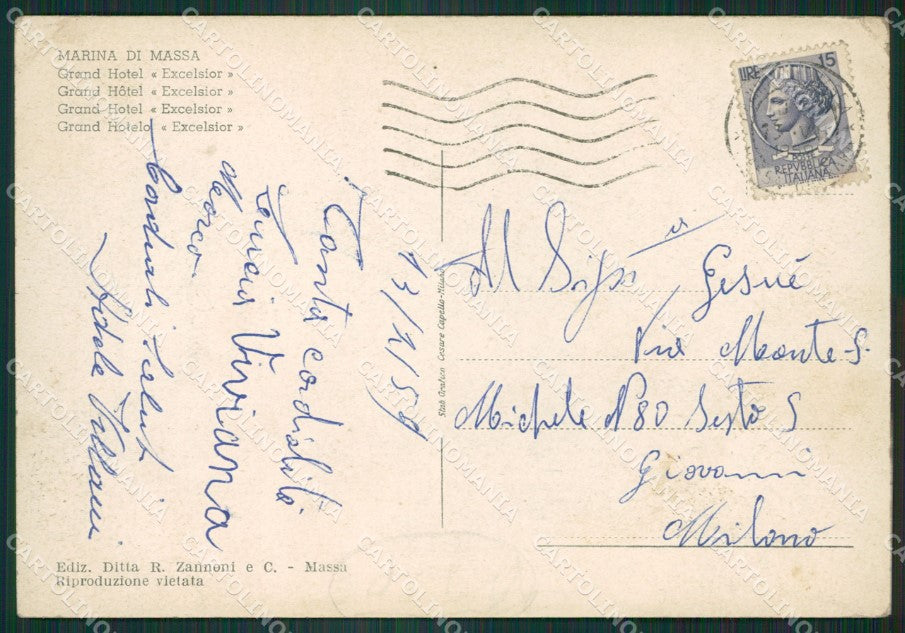 MARINA DI MASSA
Grand Hotel « Excelsior »
Grand Hôtel « Excelsior »
Grand Hotel « Excelsior »
Grand Hotelo « Excelsior »
LIRE 15
REPVBBLICA
ITALIANA
13/1/59
Tanta cordialità
Viviana
Marco
Cordiali saluti
Adele
Stab. Grafico Cesare Capello-Milano
Al Sigr
Gesuè
Via Monte S.
Michele N 80 Sesto S
Giovanni
Milano
Ediz. Ditta R. Zannoni e C. - Massa
Riproduzione vietata
CARTOLINOMANIA